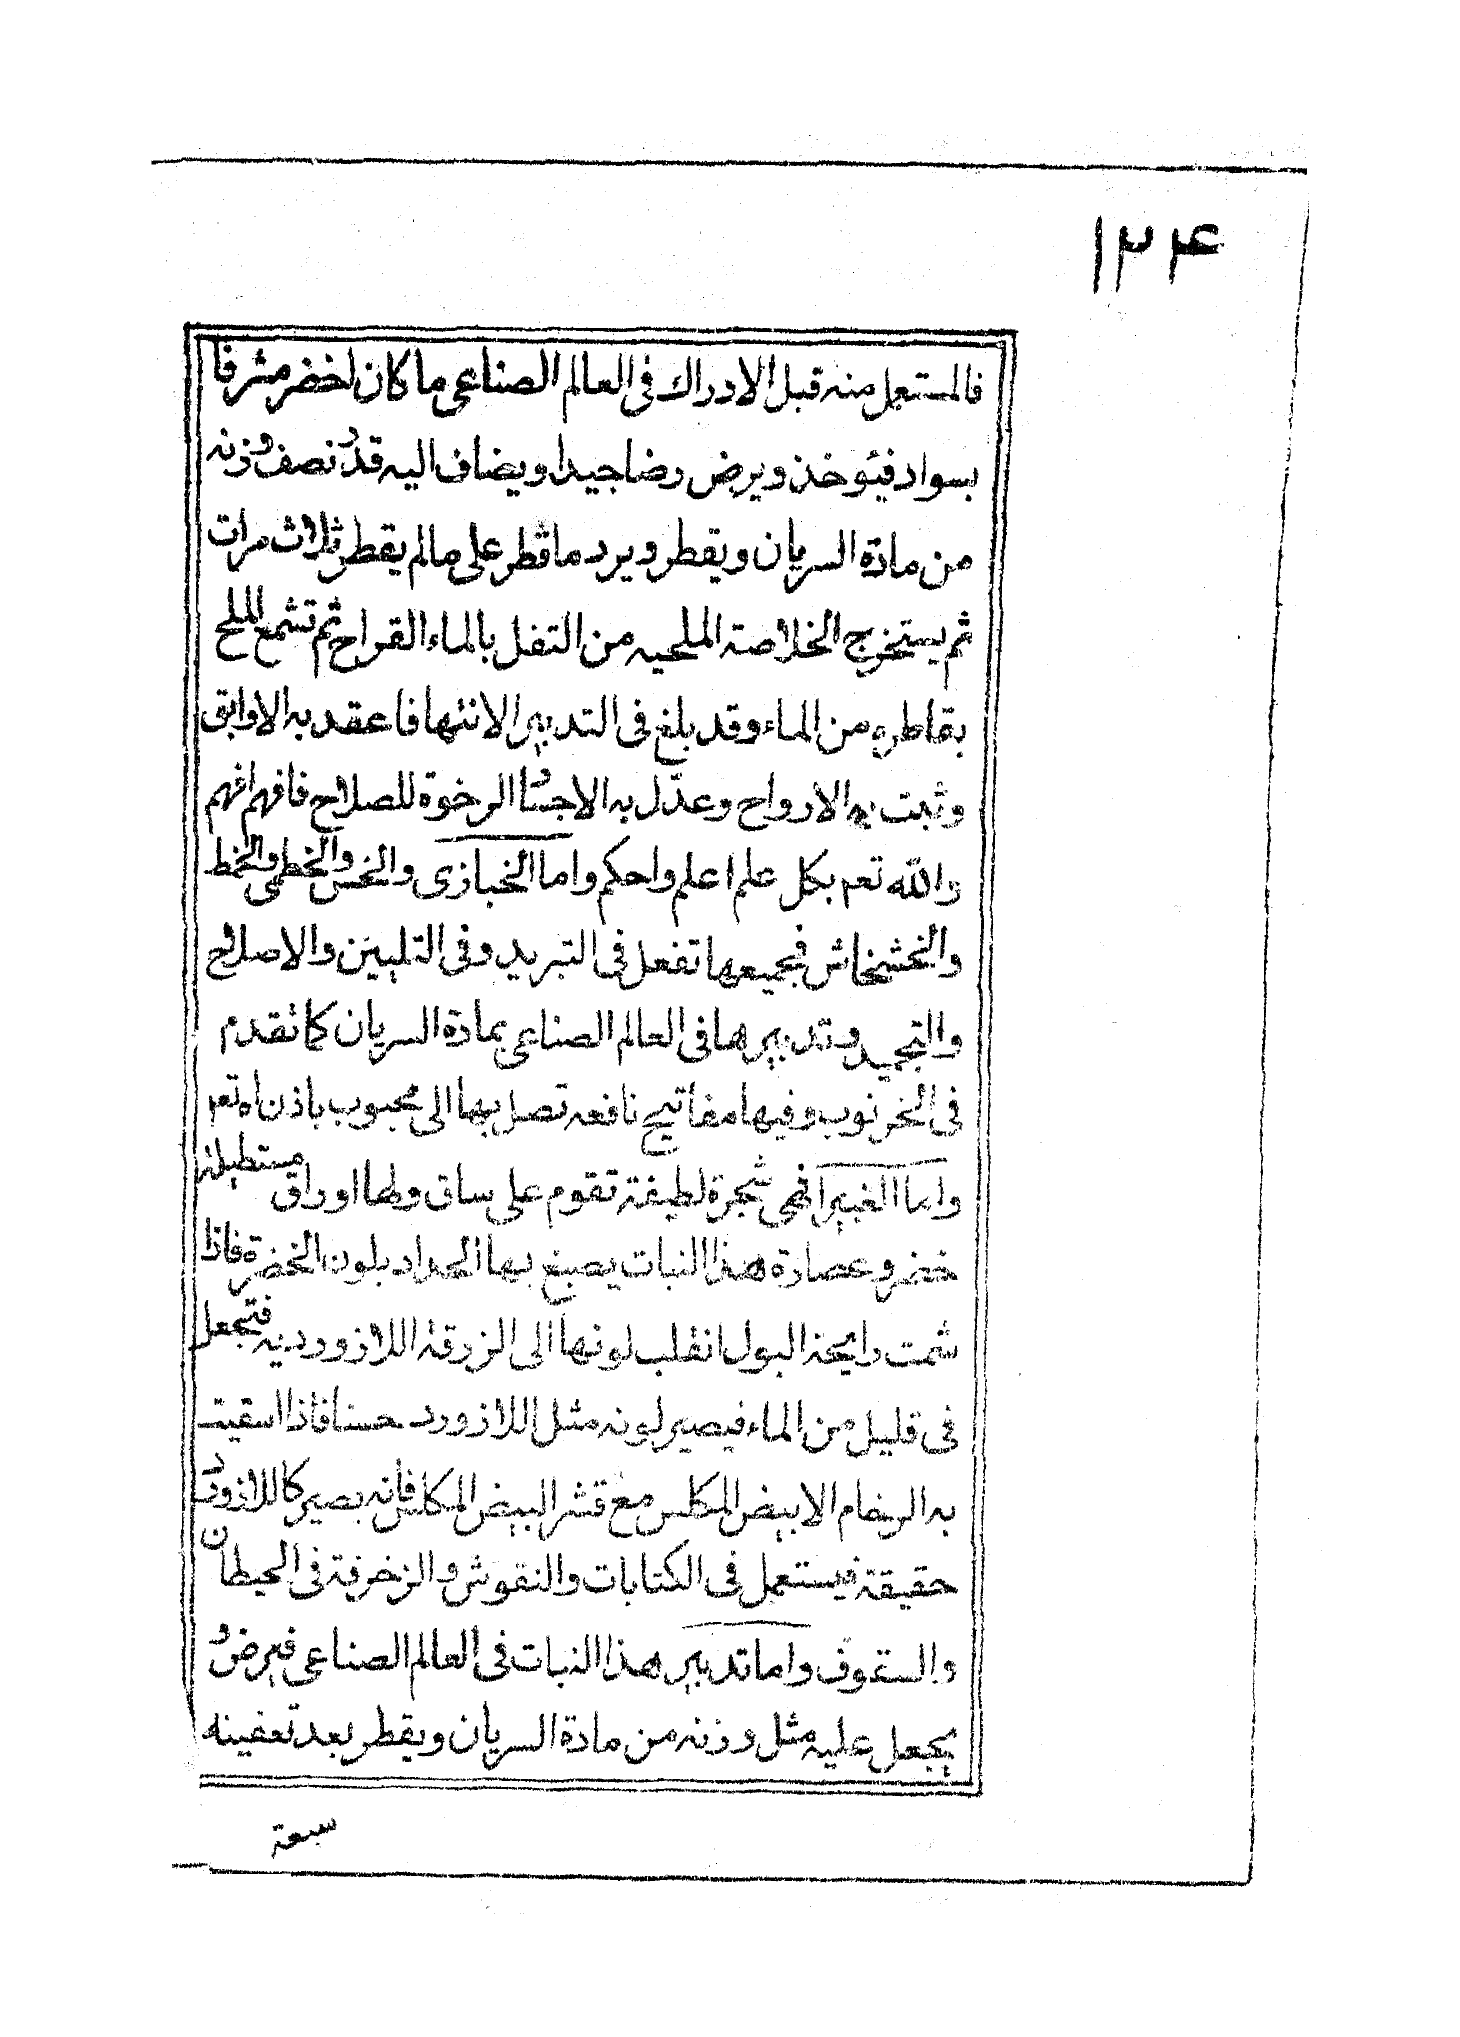 ۱۲۴
فالمستعمل منه قبل الادراك فى العالم الصناعى ما كان اخضر مشرفا
بسواد فيؤخذ ويرض رضا جيدا ويضاف اليه قدر نصف وزنه
من مادة السريان ويقطر ويرد ما قطر على مالم يقطر ثلاث مرات
ثم يستخرج الخلاصة الملحيه من التفل بالماء القراح ثم تشمع الملح
بقاطره من الماء وقد بلغ فى التدبير الانتها فاعقد به الاوابق
وثبت به الارواح وعدّل به الاجساد الرخوة للصلاح فافهم افهم
والله تعم بكل علم اعلم واحكم واما الخبازى والخس والخطمى والخمط
والخشخاش فجميعها تفعل فى التبريد وفى التليين والاصلاح
والتجميد وتدبيرها فى العالم الصناعى بمادة السريان كما تقدم
فى الخرنوب وفيها مفاتيح نافعه تصل بها الى محبوب باذن اه تعم
واما الغبيرا فهى شجرة لطيفة تقوم على ساق ولها اوراق مستطيلة
خضر وعصارة هذا النبات يصبغ بها المداد بلون الخضرة فاذا
شمت رايحة البول انقلب لونها الى الزرقة اللازورديه فتجعل
فى قليل من الماء فيصير لونه مثل اللازورد حسنا فاذا اسقيت
به الرخام الابيض المكلس مع قشر البيض المكلس فانه يصير كاللازورد
حقيقة فيستعمل فى الكتابات والنقوش والزخرفة فى الحيطان
والسقوف واما تدبير هذا النبات فى العالم الصناعى فيرض و
يجعل عليه مثل وزنه من مادة السريان ويقطر بعد تعفينه
سبعة